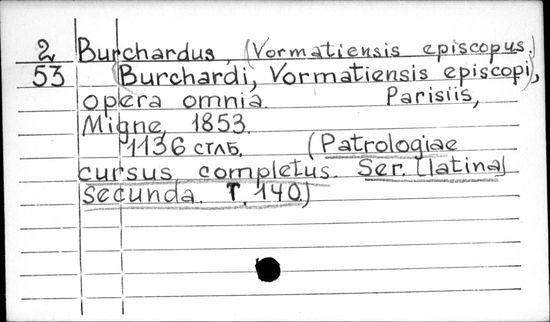 2 Burchardus, (Vormatiensis episcopus.)
53 (Burchardi, Vormatiensis episcopi),
opera omnia. Parisiis,
Migne, 1853.
1136 стлб. (Patrologiae
cursus completus. Ser. (latina)
secunda. Т. 140.)